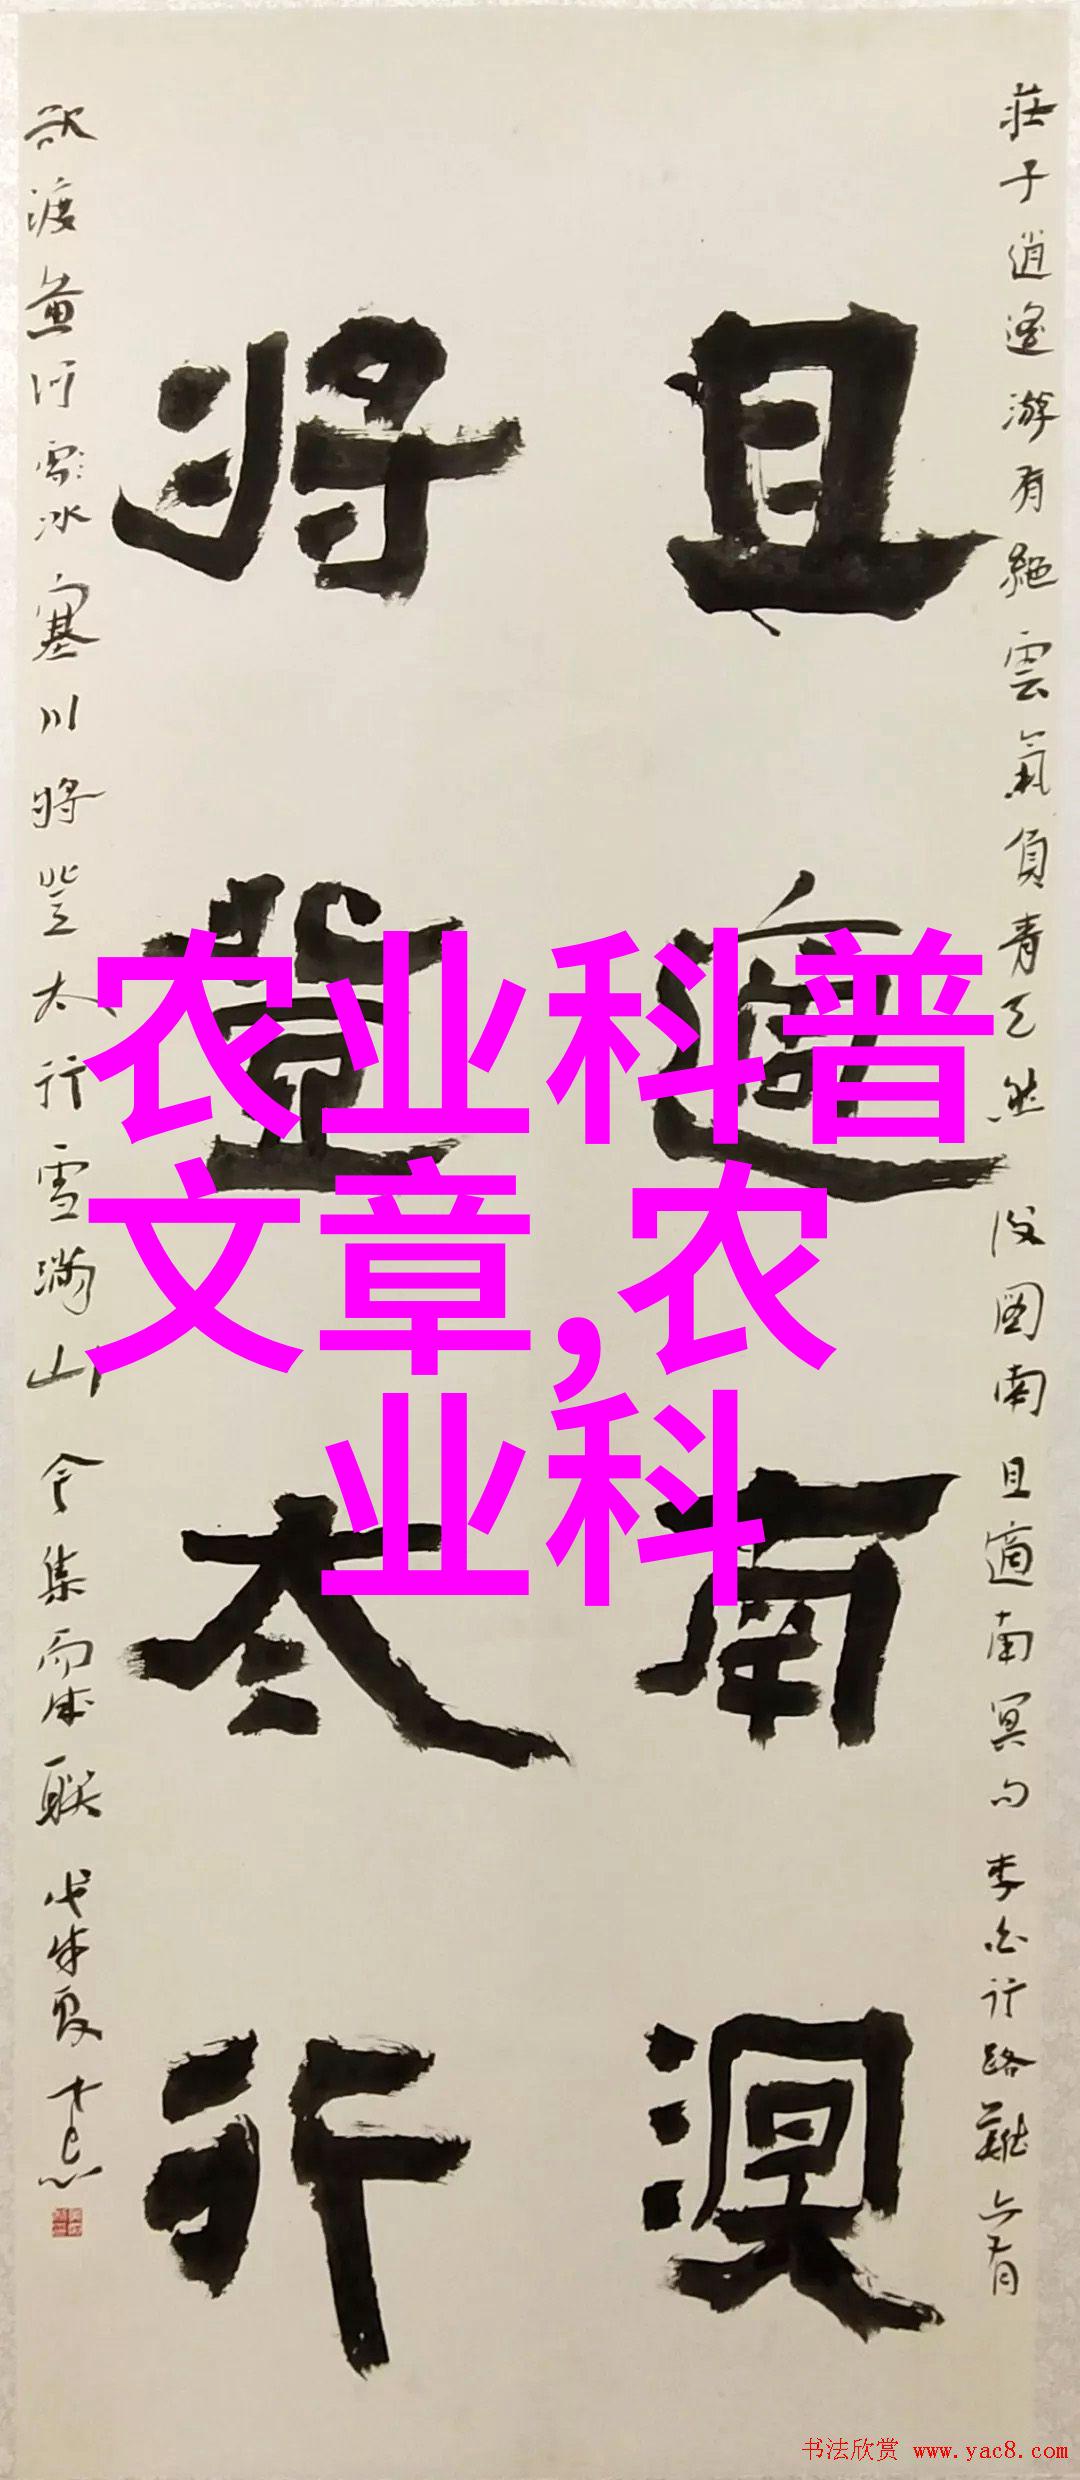 莊子逍遙游有絕雲氣負青天然後圖南且適南冥句李白行路難亦有
且適南溟
將登太行
欲渡黃河冰塞川將登太行雪滿山今集而成聯戊戌夏
农业科普
文章,农
业科
书法欣赏 www.yac8.com